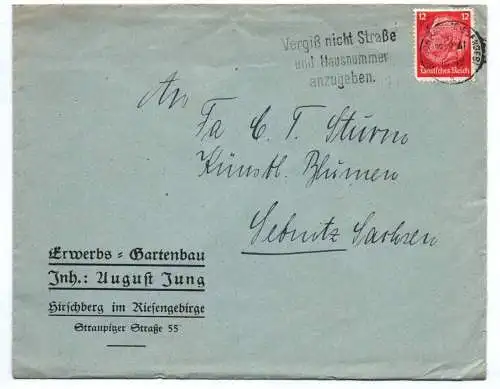 Vergiß nicht Straße
und Hausnummer
anzugeben.
12 12
Deutsches Reich
An
Fa C. T. Sturm
Künstl. Blumen
Sebnitz Sachsen
Erwerbs = Gartenbau
Inh.: August Jung
Hirschberg im Riesengebirge
Straupitzer Straße 55